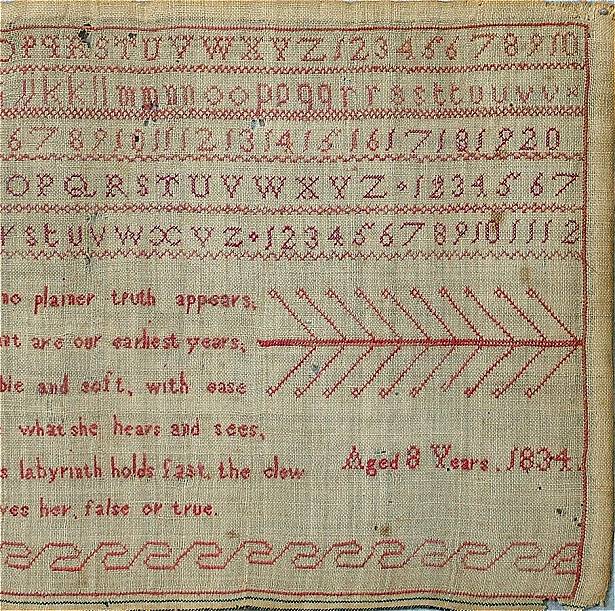 O P Q R S T U V W X Y Z 1 2 3 4 5 6 7 8 9 10
k k l l m m n n o o p p q q r r s s t t u u v v
6 7 8 9 10 11 12 13 14 15 16 17 18 19 20
O P Q R S T U V W X Y Z 1 2 3 4 5 6 7
r s t u v w x y z 1 2 3 4 5 6 7 8 9 10 11 12
no plainer truth appears,
are our earliest years,
and soft, with ease
what she hears and sees,
labyrinth holds fast the clew
her, false or true.
Aged 8 Years. 1834.